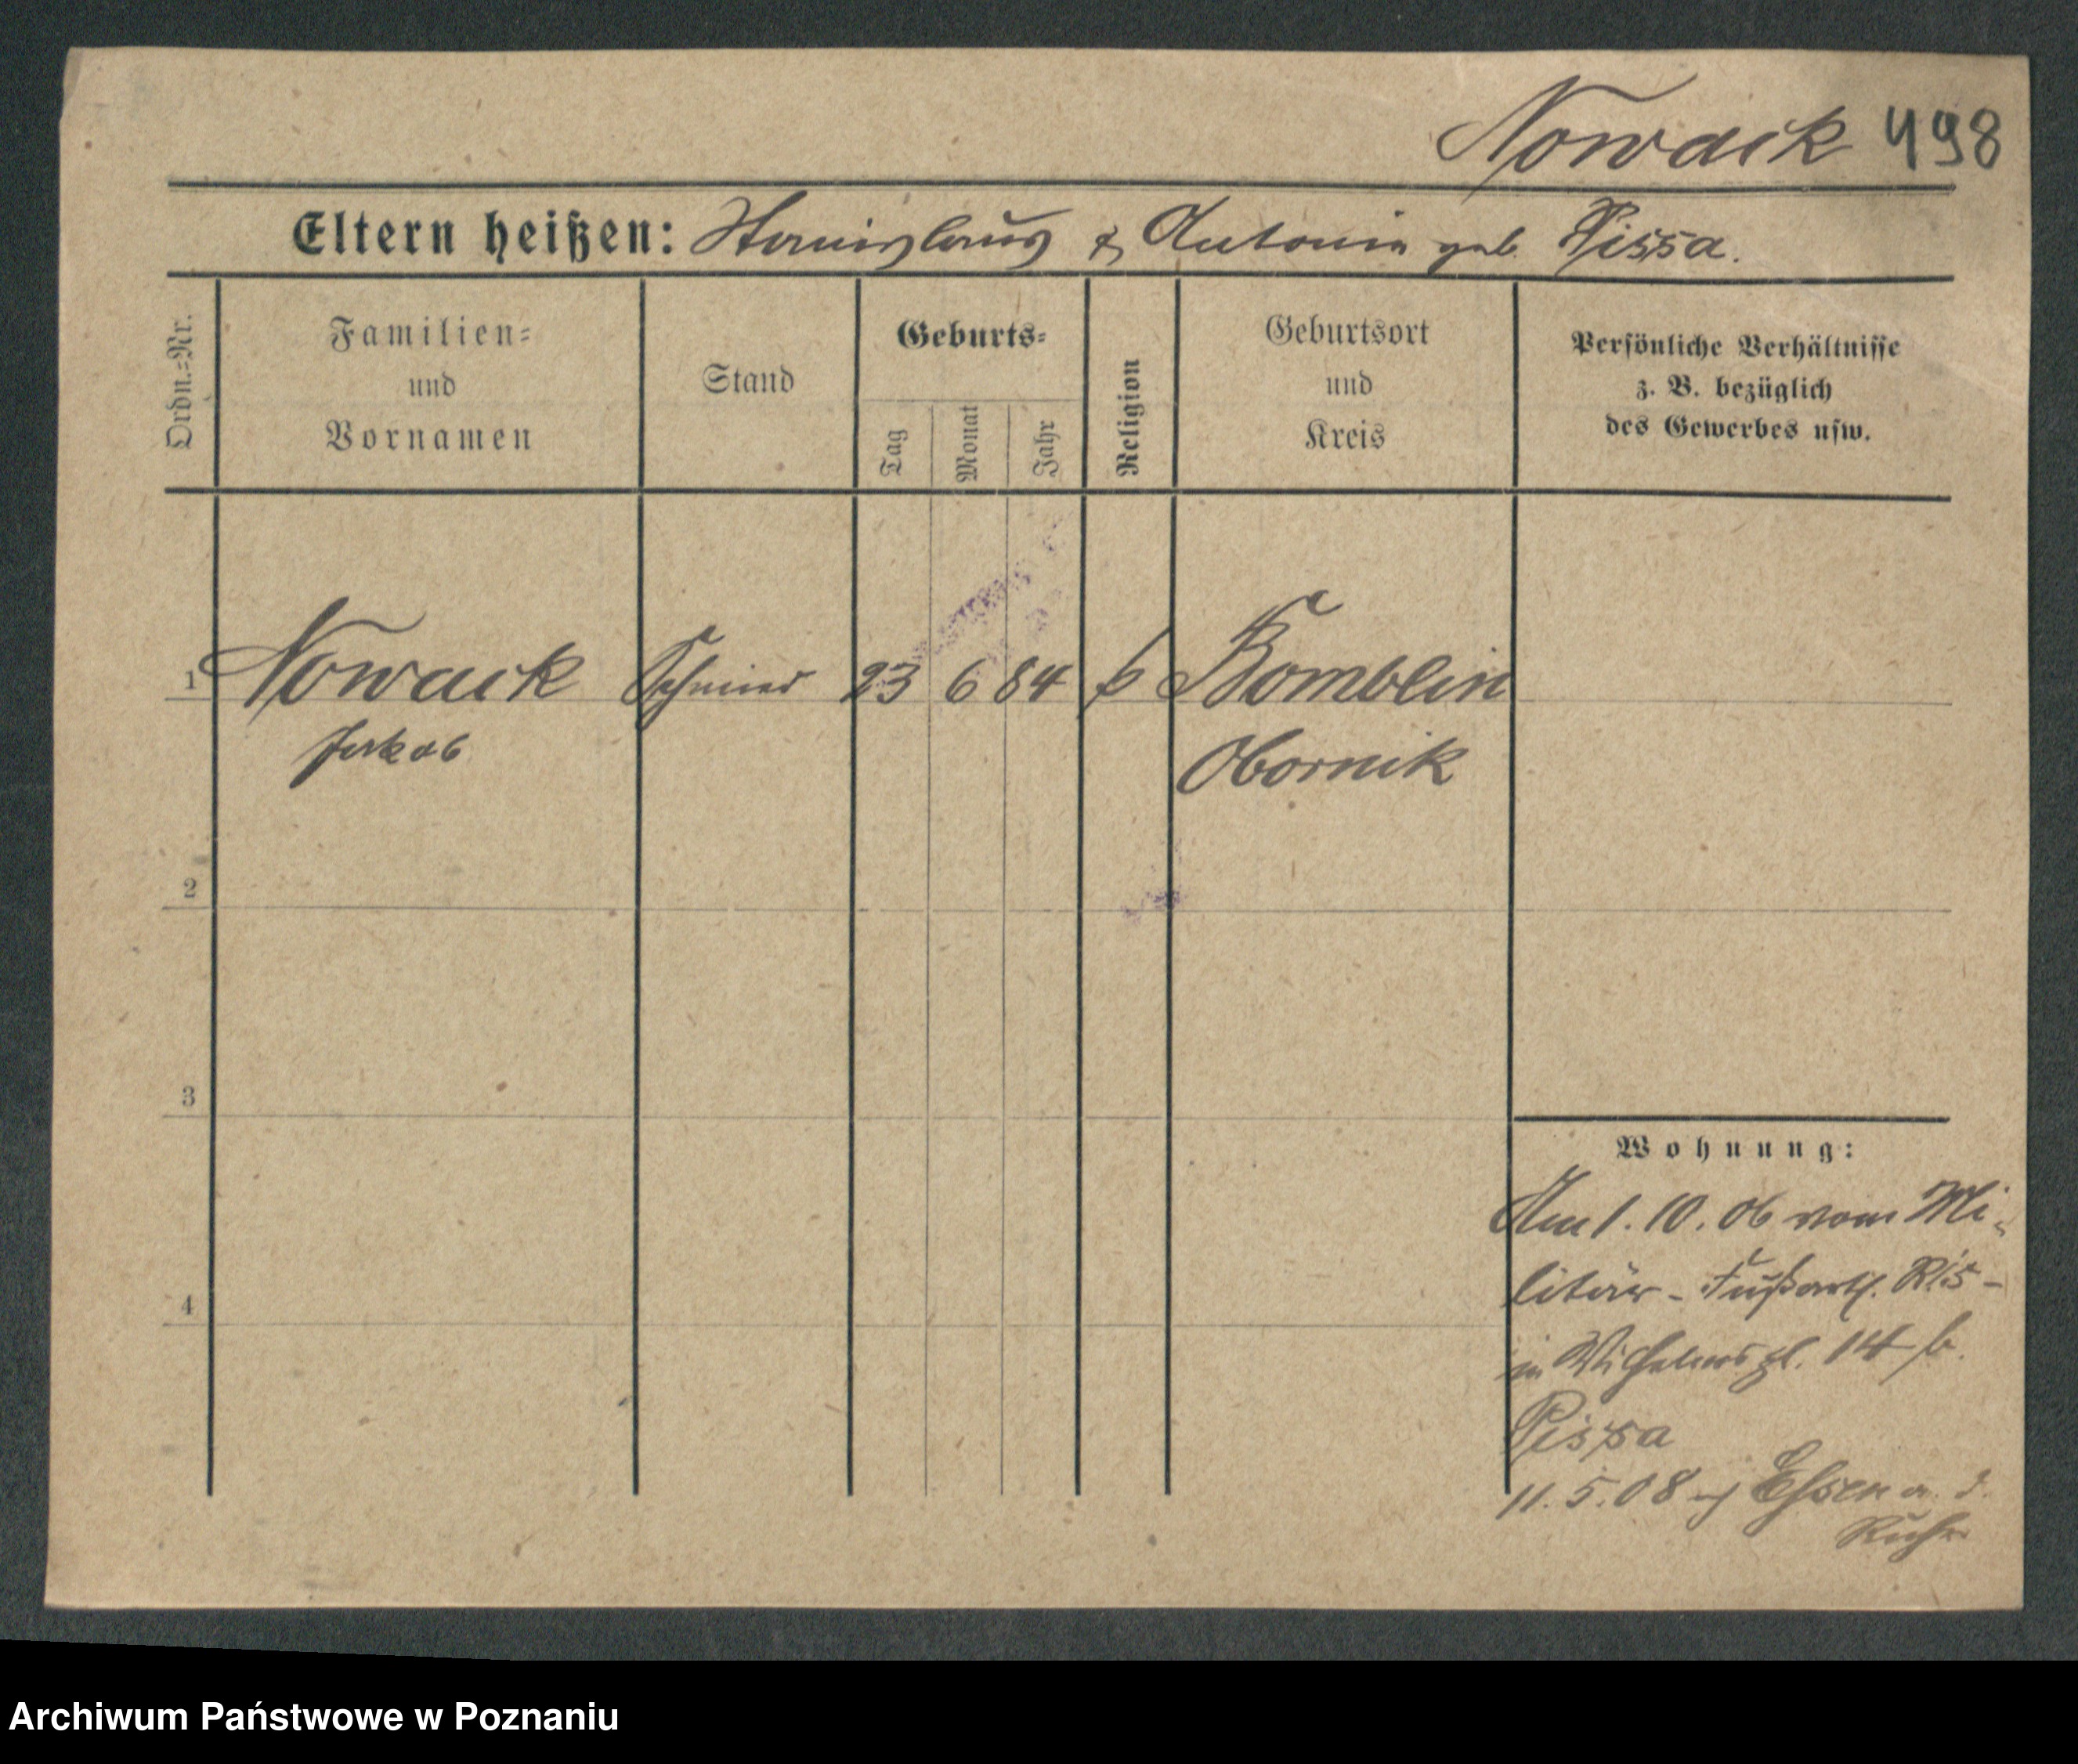 Nowack 498
Eltern heißen: Stanislaus & Antonia geb. Pissa.
Ordn.=Nr.
Familien=
und
Vornamen
Stand
Geburts=
Tag
Monat
Jahr
Religion
Geburtsort
und
Kreis
Persönliche Verhältnisse
z. B. bezüglich
des Gewerbes usw.
1 Nowack Schmied 23 6 84 k Bomblin
Jakob Obornik
2
3
4
Wohnung:
Am 1. 10. 06 vom Mi-
litär - Fußart.
in Wilhelmspl. 14 b.
Pissa
11. 5. 08 Essen a. d.
Ruhr
Archiwum Państwowe w Poznaniu